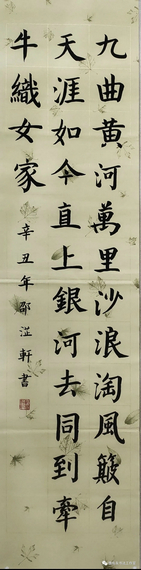 九曲黄河萬里沙浪淘風簸自
天涯如今直上銀河去同到牽
牛織女家
辛丑年邵溢軒書